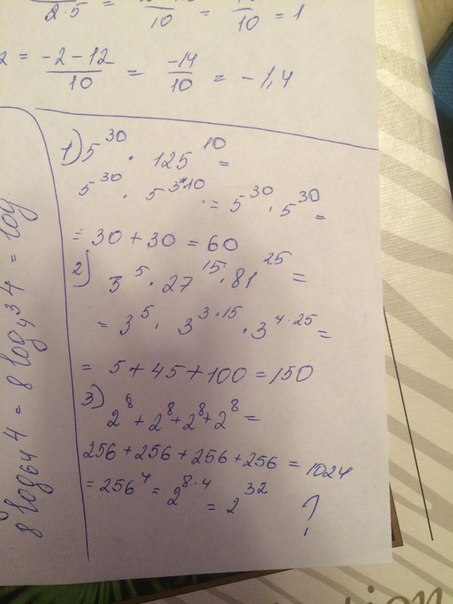 2·5 10 = 10 = 1
2 = -2-12/10 = -14/10 = -1,4
1) 5^30 · 125^10 =
5^30 · 5^3·10 = 5^30 · 5^30 =
= 30 + 30 = 60
2) 3^5 · 27^15 · 81^25 =
= 3^5 · 3^3·15 · 3^4·25 =
= 5 + 45 + 100 = 150
3) 2^8 + 2^8 + 2^8 + 2^8 =
256 + 256 + 256 + 256 = 1024
= 256^4 = 2^8·4 = 2^32 ?
8 log_64 4 = 8 log_4^3 4 = log